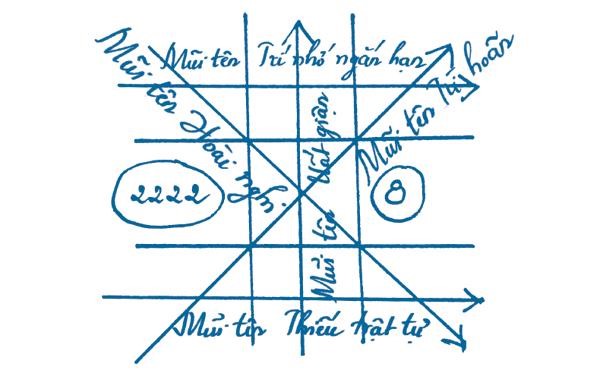 Mũi tên Trí nhớ ngắn hạn
Mũi tên Hoài nghi
Mũi tên Trì hoãn
Mũi tên Uất giận
2222
8
Mũi tên Thiếu trật tự